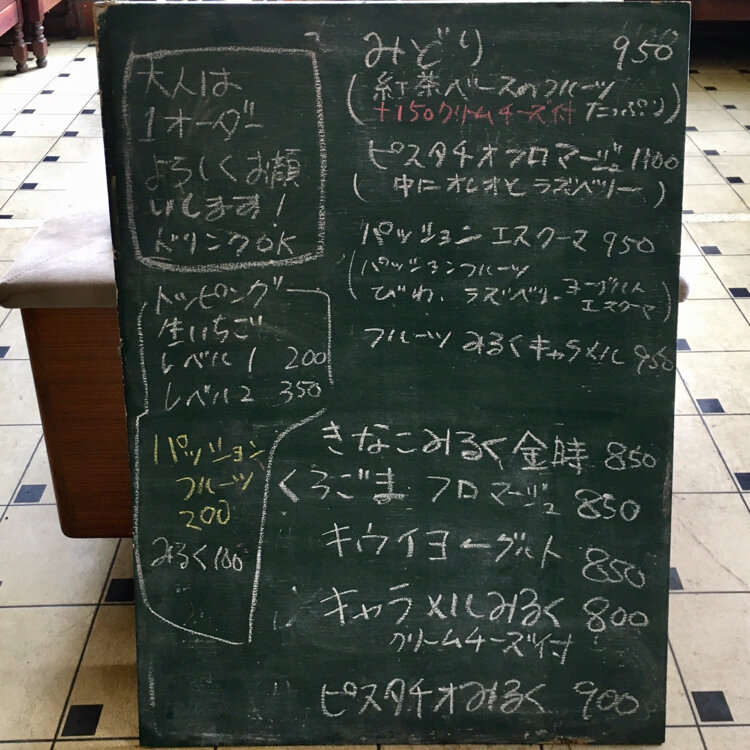 大人は
1オーダー
よろしくお願
いします!
ドリンクOK
トッピング
生いちご
レベル1 200
レベル2 350
パッション
フルーツ
200
みるく100
みどり 950
(紅茶ベースのフルーツ
+150クリームチーズ付 たっぷり)
ピスタチオフロマージュ 1100
(中にオレオとラズベリー)
パッションエスクーマ 950
(パッションフルーツ
びわ、ラズベリー、ヨーグルト
エスクーマ)
フルーツみるくキャラメル 950
きなこみるく金時 850
くろごまフロマージュ 850
キウイヨーグルト 850
キャラメルみるく 800
クリームチーズ付
ピスタチオみるく 900